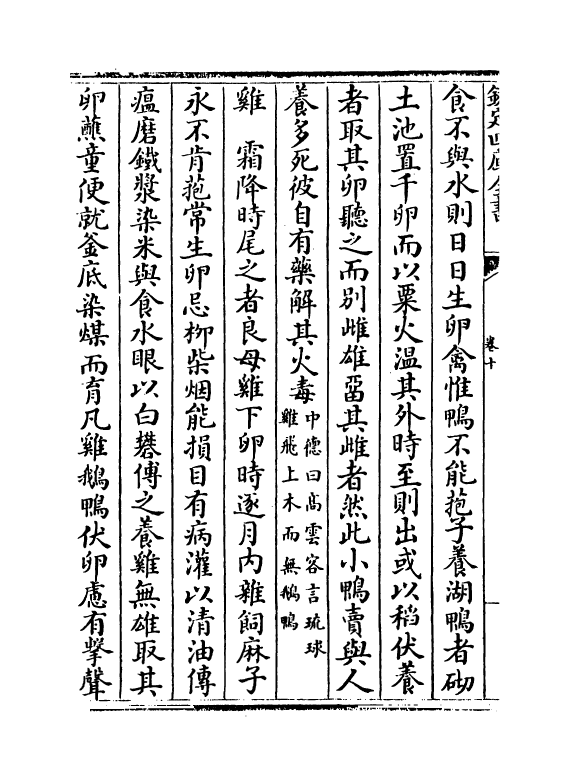 欽定四庫全書
卷十
食不與水則日日生卵禽惟鴨不能菢子養湖鴨者砌
土池置千卵而以粟火温其外時至則出或以稻伏養
者取其卵聽之而别雌雄畱其雌者然此小鴨賣與人
養多死彼自有藥解其火毒中德曰髙雲容言琉球
雞飛上木而無鵝鴨
雞　霜降時尾之者良母雞下卵時逐月内雜飼麻子
永不肯菢常生卵忌柳柴烟能損目有病灌以清油傳
瘟磨鐵漿染米與食水眼以白礬傅之養雞無雄取其
卵蘸童便就釜底染煤而育凡雞鵝鴨伏卵慮有擊聲